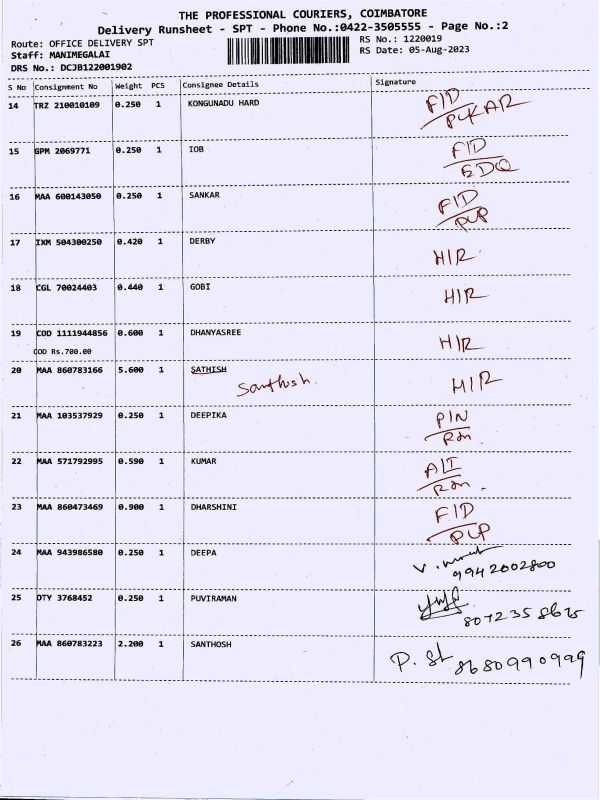 THE PROFESSIONAL COURIERS, COIMBATORE
Delivery Runsheet - SPT - Phone No.:0422-3505555 - Page No.:2
Route: OFFICE DELIVERY SPT
RS No.: 1220019
Staff: MANIMEGALAI
RS Date: 05-Aug-2023
DRS No.: DCJB122001902
S No Consignment No Weight PCS Consignee Details Signature
14 TRZ 210010109 0.250 1 KONGUNADU HARD FID
PUKAR
15 GPM 2069771 0.250 1 IOB FID
EDQ
16 MAA 600143050 0.250 1 SANKAR FID
PUP
17 IXM 504300250 0.420 1 DERBY HIR
18 CGL 70024403 0.440 1 GOBI HIR
19 COD 1111944856 0.600 1 DHANYASREE HIR
COD Rs.700.00
20 MAA 860783166 5.600 1 SATHISH HIR
Santhosh.
21 MAA 103537929 0.250 1 DEEPIKA PIN
Rm.
22 MAA 571792995 0.590 1 KUMAR ALT
Rm.
23 MAA 860473469 0.900 1 DHARSHINI FID
PUP
24 MAA 943986580 0.250 1 DEEPA
9942002800
25 OTY 3768452 0.250 1 PUVIRAMAN
26 MAA 860783223 2.200 1 SANTHOSH P. St
8680990999